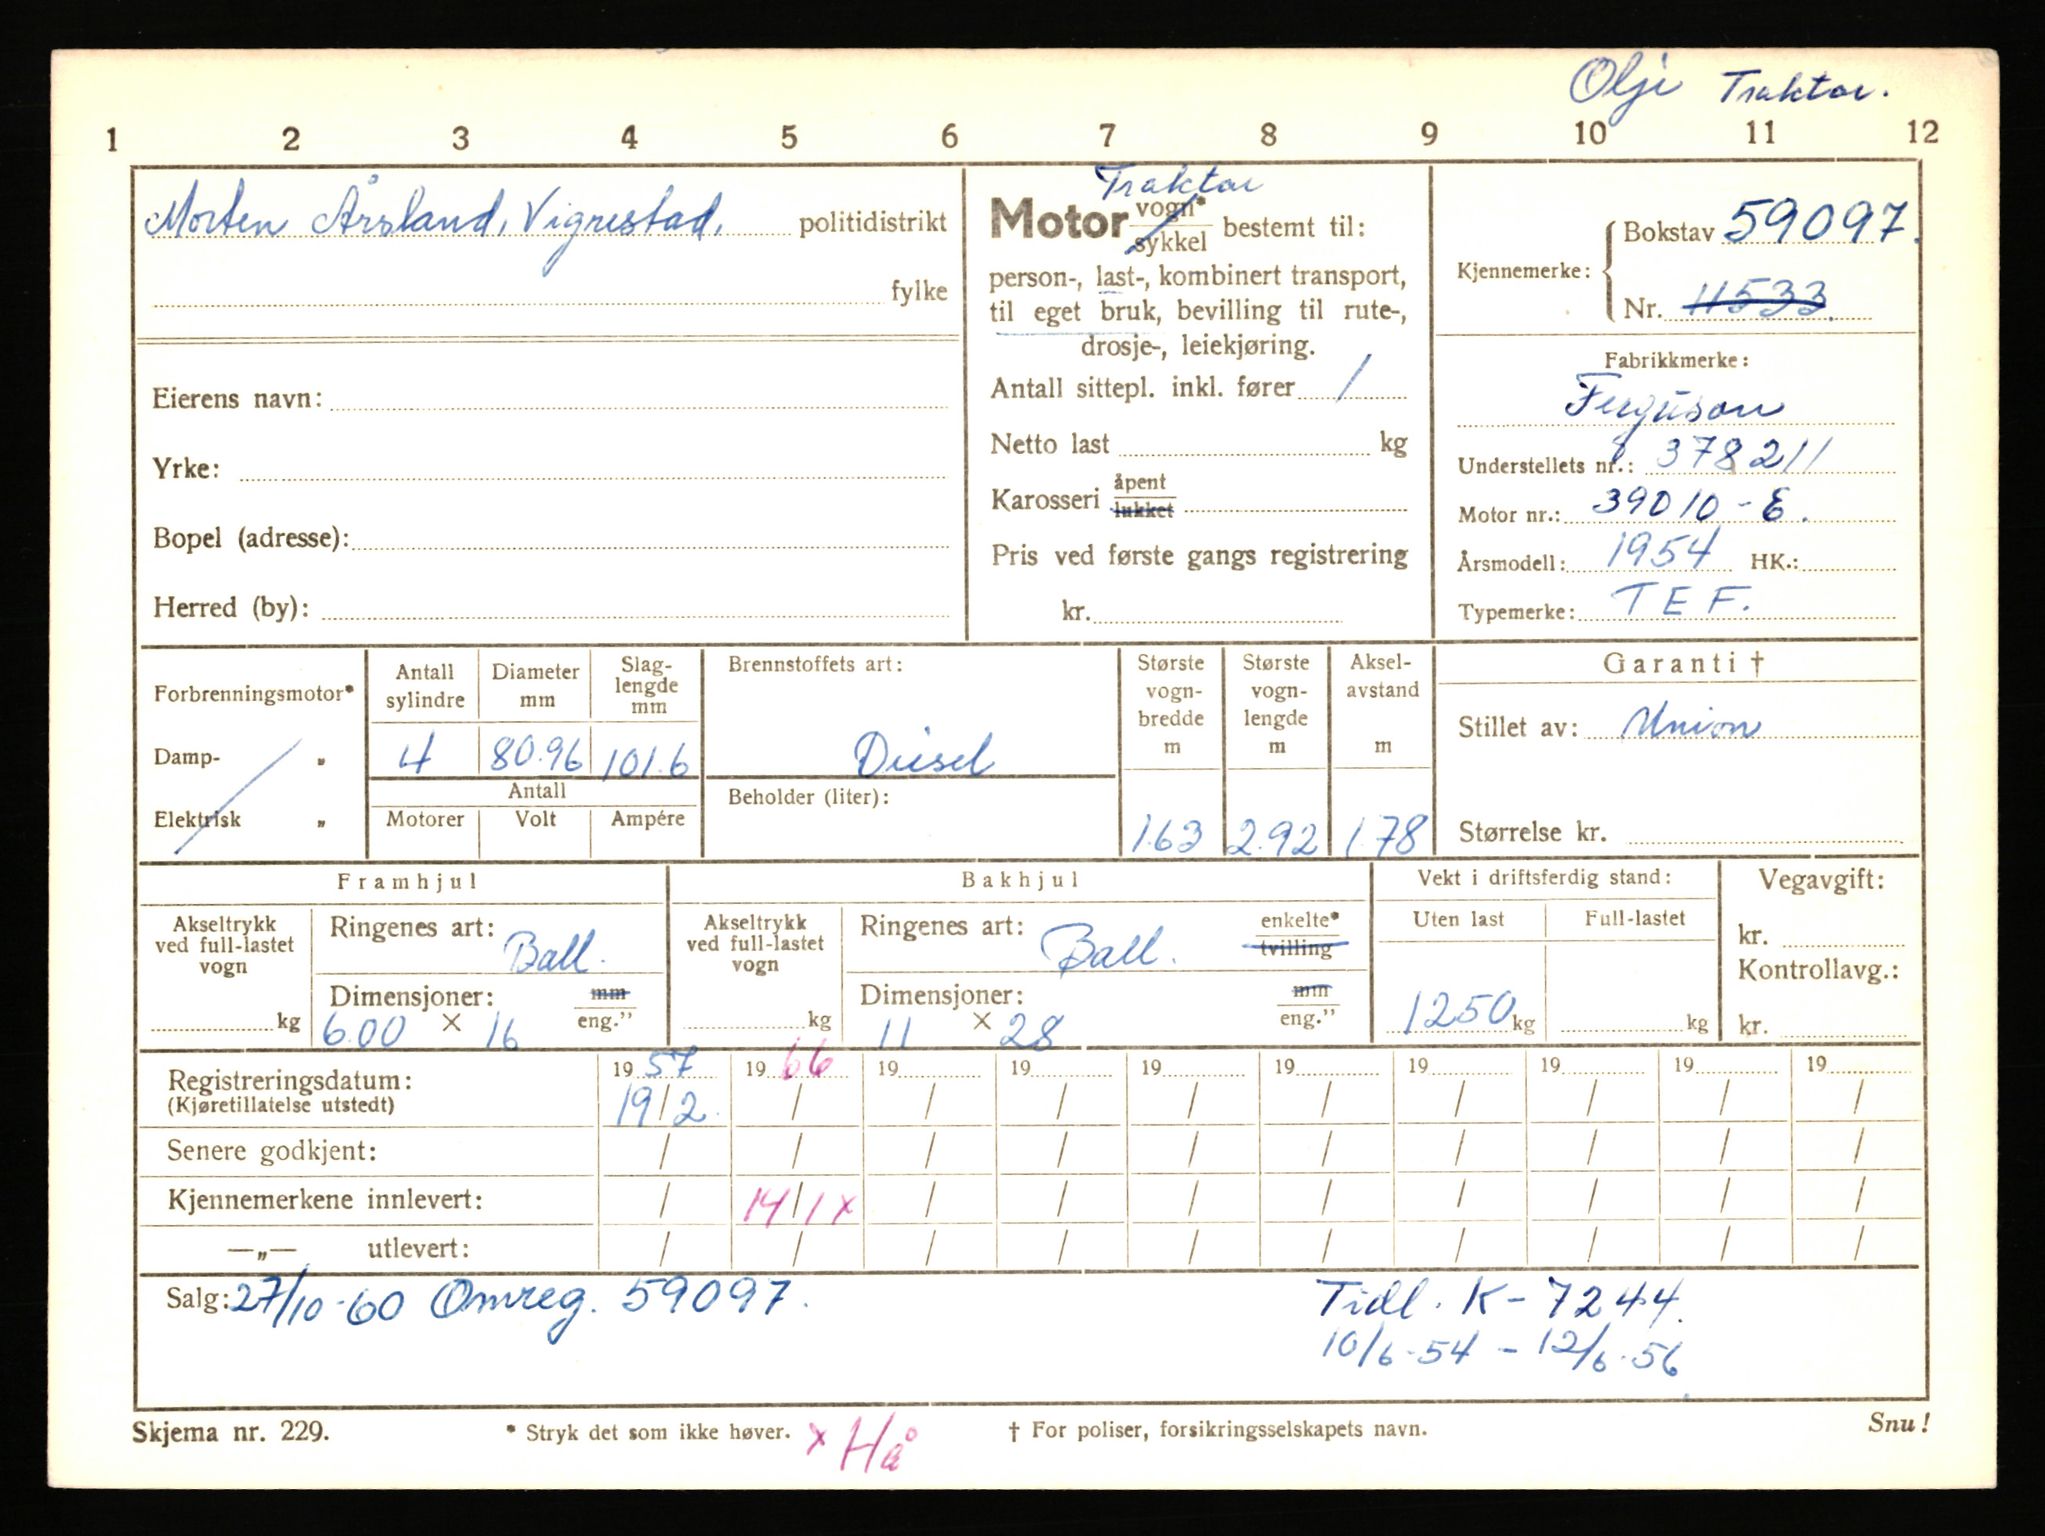 Olje Traktor.
1 2 3 4 5 6 7 8 9 10 11 12
Morten Årsland, Vigrestad, politidistrikt
fylke
Eierens navn:
Yrke:
Bopel (adresse):
Herred (by):
Traktor
Motor vogn* sykkel bestemt til:
person-, last-, kombinert transport,
til eget bruk, bevilling til rute-,
drosje-, leiekjøring.
Antall sittepl. inkl. fører 1
Netto last kg
Karosseri åpent lukket
Pris ved første gangs registrering
kr.
Kjennemerke: Bokstav 59097.
Nr. 11533.
Fabrikkmerke:
Ferguson
Understellets nr.: 378211
Motor nr.: 39010-E.
Årsmodell: 1954 HK.:
Typemerke: TEF.
Forbrenningsmotor*
Damp- „
Elektrisk „
Antall sylindre Diameter mm Slag-lengde mm
4 80.96 101.6
Antall
Motorer Volt Ampére
Brennstoffets art:
Diesel
Beholder (liter):
Største vogn-bredde m Største vogn-lengde m Aksel-avstand m
1.63 2.92 1.78
Garanti †
Stillet av: Union
Størrelse kr.
Framhjul
Akseltrykk ved full-lastet vogn
kg
Ringenes art: Ball.
Dimensjoner: mm eng.”
6.00 × 16
Bakhjul
Akseltrykk ved full-lastet vogn
kg
Ringenes art: Ball. enkelte* tvilling
Dimensjoner: mm eng.”
11 × 28
Vekt i driftsferdig stand:
Uten last Full-lastet
1250 kg kg
Vegavgift:
kr.
Kontrollavg.:
kr.
Registreringsdatum: 19 57 19 66 19 19 19 19 19 19 19 19
(Kjøretillatelse utstedt) 19/2 / / / / / / / / /
Senere godkjent: / / / / / / / / / /
Kjennemerkene innlevert: / 14/1 x / / / / / / / /
—„— utlevert: / / / / / / / / / /
Salg: 27/10-60 Omreg. 59097. Tidl. K-7244.
10/6-54 - 12/6-56
Skjema nr. 229. * Stryk det som ikke høver. x Hå † For poliser, forsikringsselskapets navn. Snu!